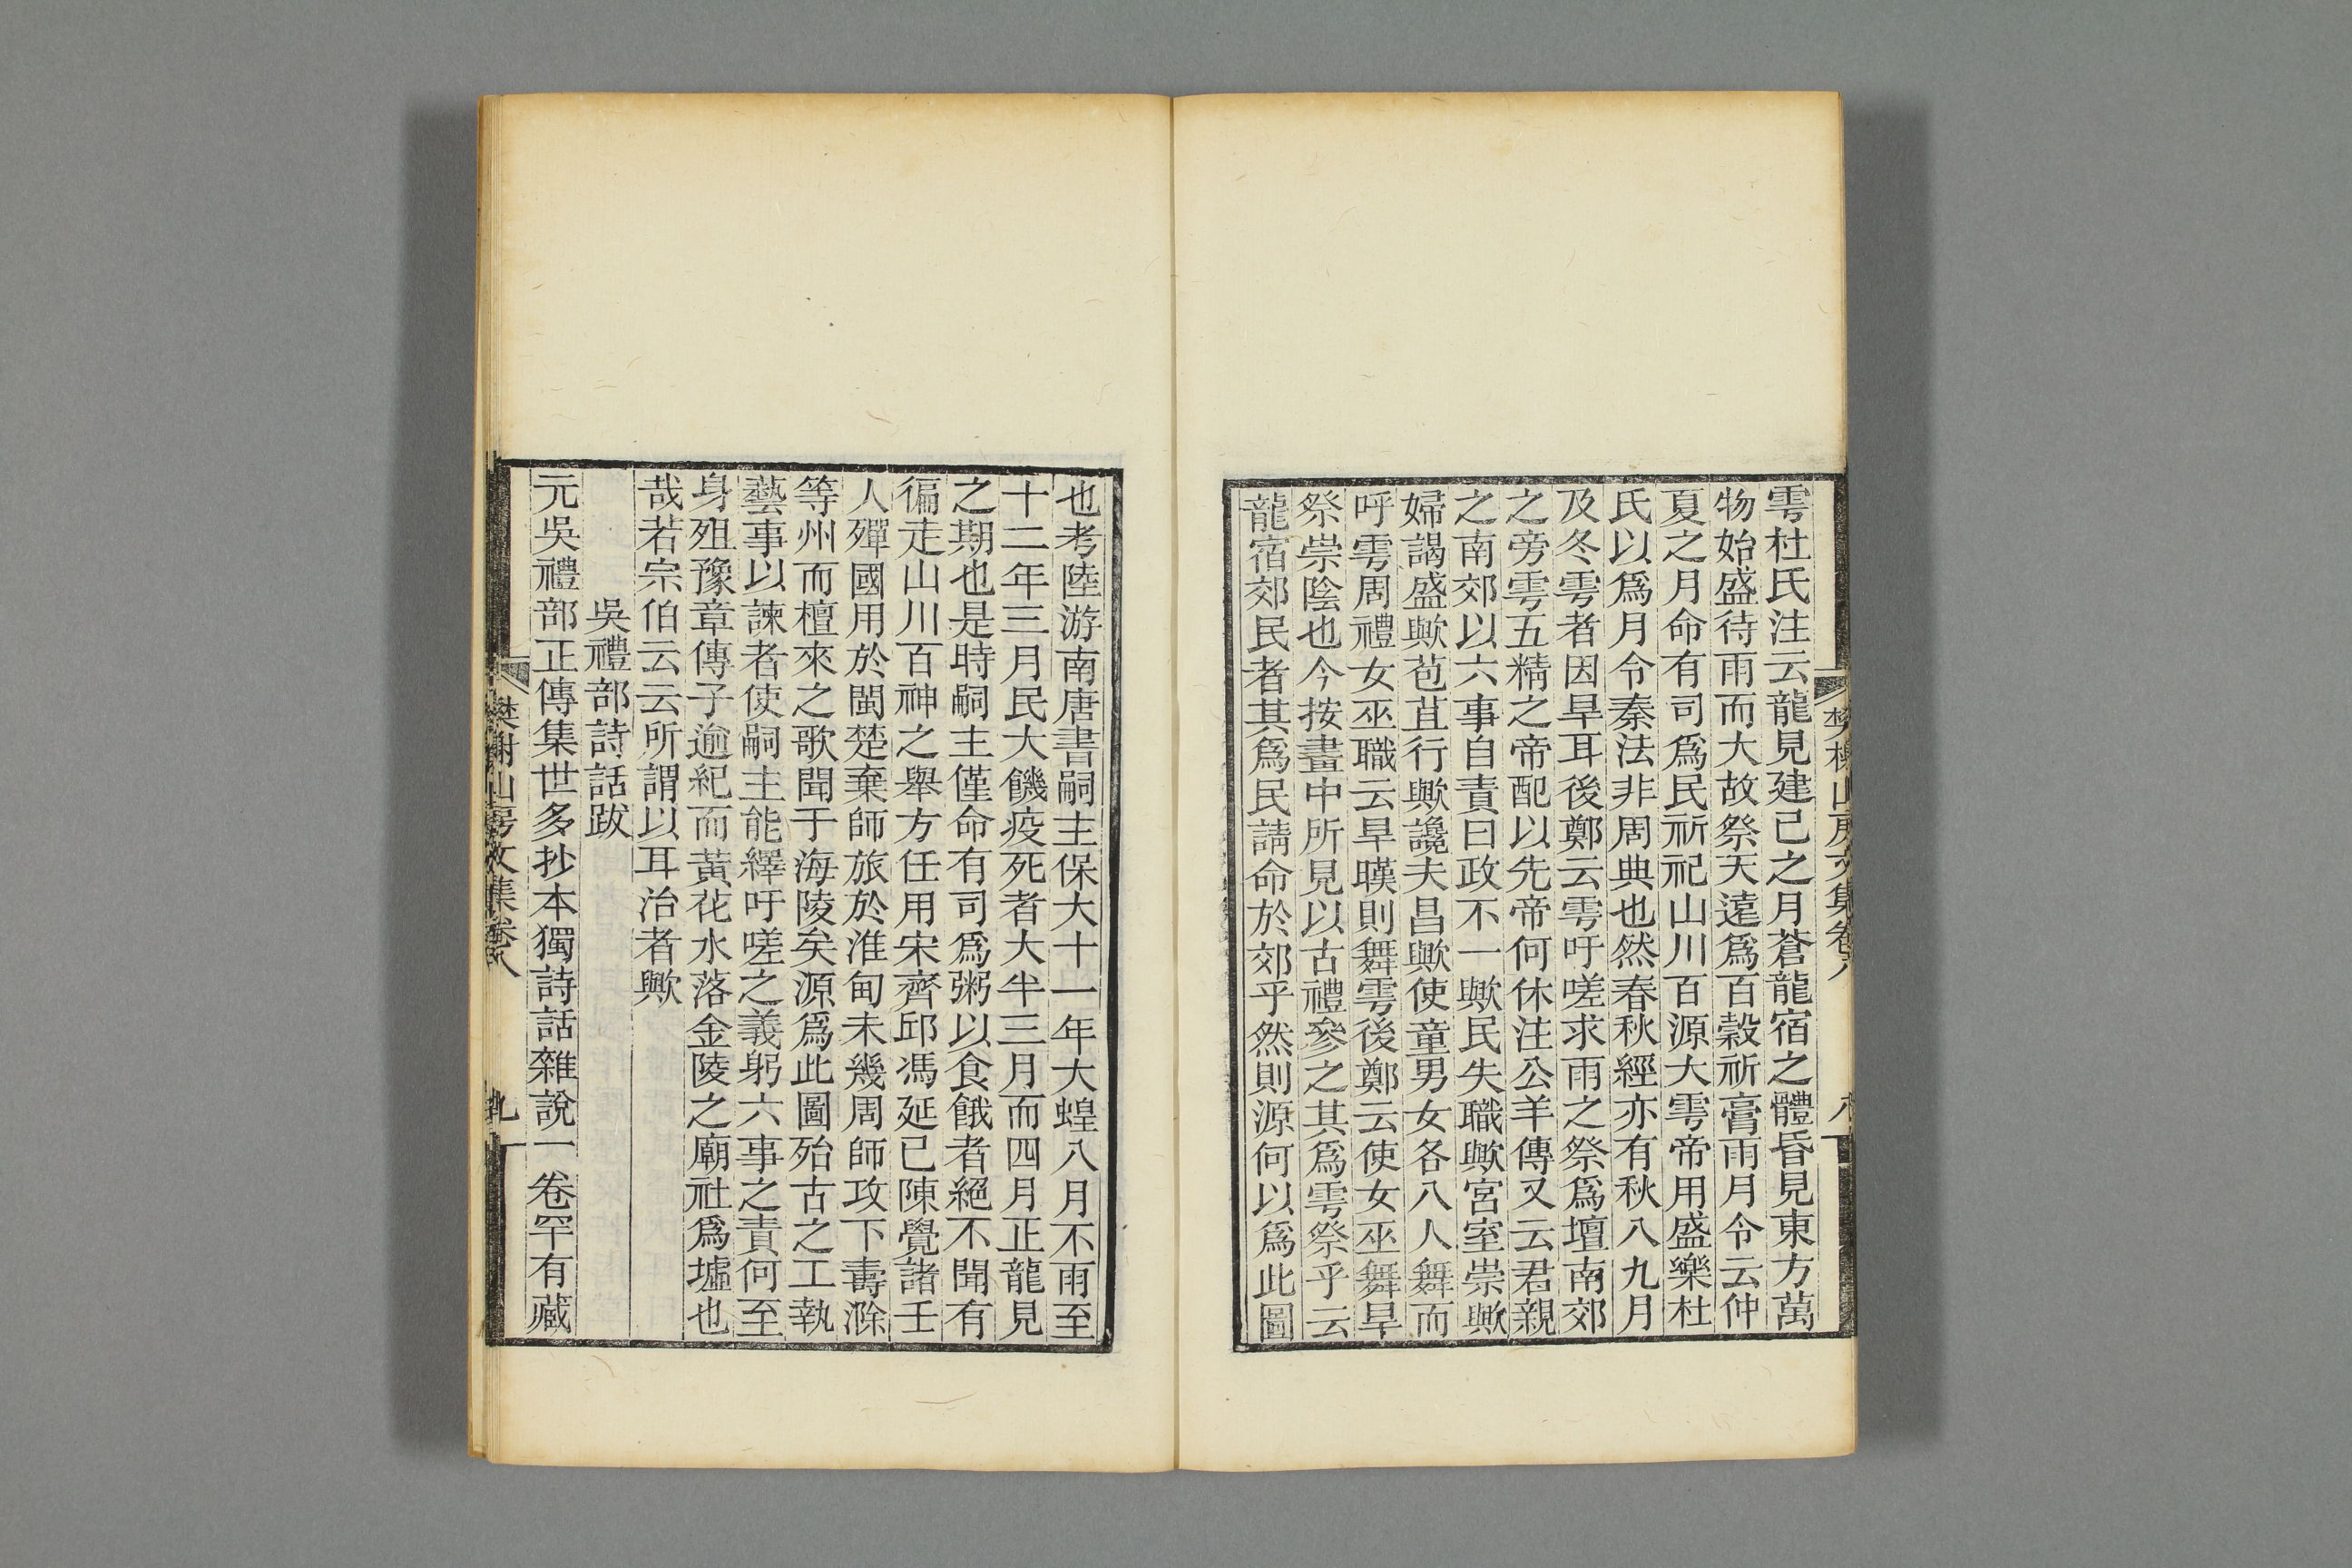 雩杜氏注云龍見建巳之月蒼龍宿之體昏見東方萬
物始盛待雨而大故祭天遠爲百穀祈膏雨月令云仲
夏之月命有司爲民祈祀山川百源大雩帝用盛樂杜
氏以爲月令秦法非周典也然春秋經亦有秋八九月
及冬雩者因旱耳後鄭云雩吁嗟求雨之祭爲壇南郊
之旁雩五精之帝配以先帝何休注公羊傳又云君親
之南郊以六事自責曰政不一歟民失職歟宮室崇歟
婦謁盛歟苞苴行歟讒夫昌歟使童男女各八人舞而
呼雩周禮女巫職云旱暵則舞雩後鄭云使女巫舞旱
祭崇陰也今按畫中所見以古禮參之其爲雩祭乎云
龍宿郊民者其爲民請命於郊乎然則源何以爲此圖
樊榭山房文集卷八
八
也考陸游南唐書嗣主保大十一年大蝗八月不雨至
十二年三月民大饑疫死者大半三月而四月正龍見
之期也是時嗣主僅命有司爲粥以食餓者絕不聞有
徧走山川百神之舉方任用宋齊邱馮延巳陳覺諸壬
人殫國用於閩楚棄師旅於淮甸未幾周師攻下壽滁
等州而檀來之歌聞于海陵矣源爲此圖殆古之工執
藝事以諫者使嗣主能繹吁嗟之義躬六事之責何至
身殂豫章傳子逾紀而黃花水落金陵之廟社爲墟也
哉若宗伯云云所謂以耳治者歟
吳禮部詩話跋
元吳禮部正傳集世多抄本獨詩話雜說一卷罕有藏
樊榭山房文集卷八
九